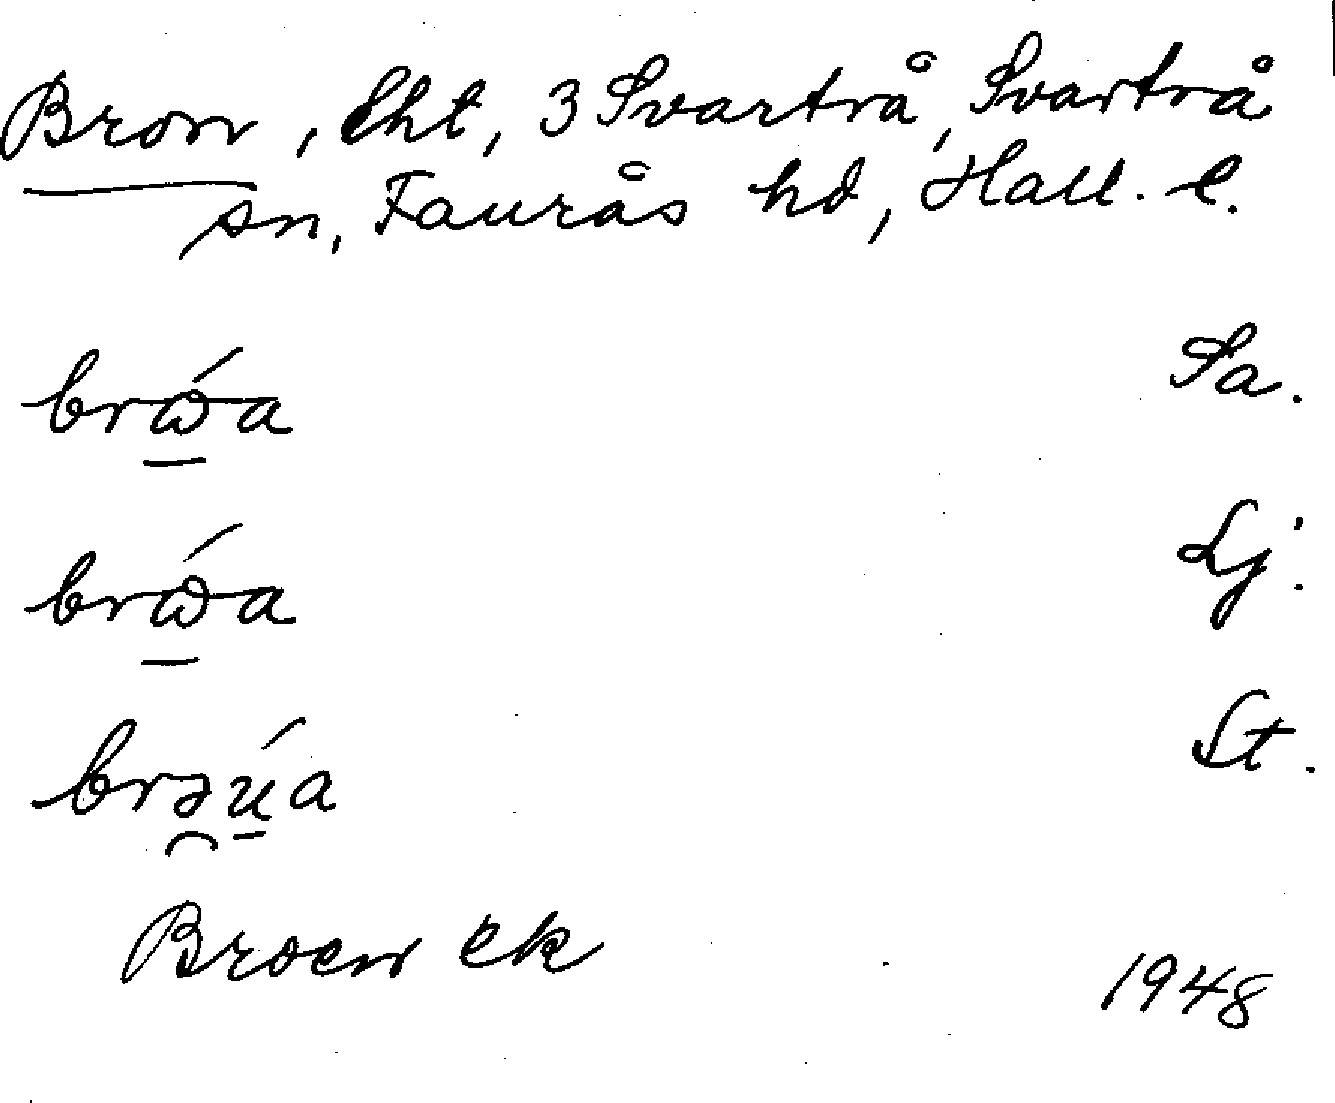 Bron, lht, 3 Svartrå, Svartrå
sn, Faurås hd, Hall. l.
brώ̱a Sa.
brώ̱a Lj.
brə̯ṵ́a St.
Broen ek 1948